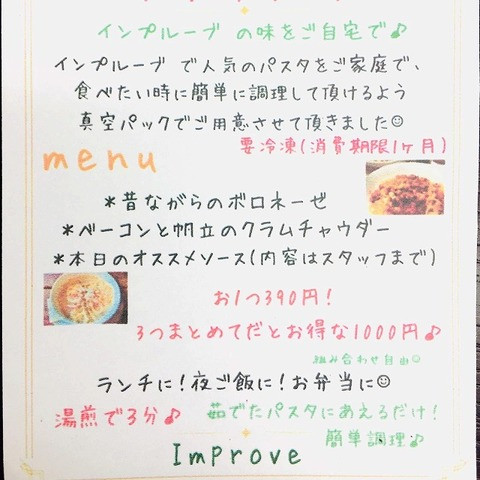 インプルーブ の味をご自宅で♪
インプルーブ で人気のパスタをご家庭で、
食べたい時に簡単に調理して頂けるよう
真空パックでご用意させて頂きました☺
要冷凍(消費期限1ヶ月)
menu
*昔ながらのボロネーゼ
*ベーコンと帆立のクラムチャウダー
*本日のオススメソース(内容はスタッフまで)
お1つ390円!
3つまとめてだとお得な1000円♪
組み合わせ自由☺
ランチに!夜ご飯に!お弁当に☺
湯煎で3分♪
茹でたパスタにあえるだけ!
簡単調理♪
Improve